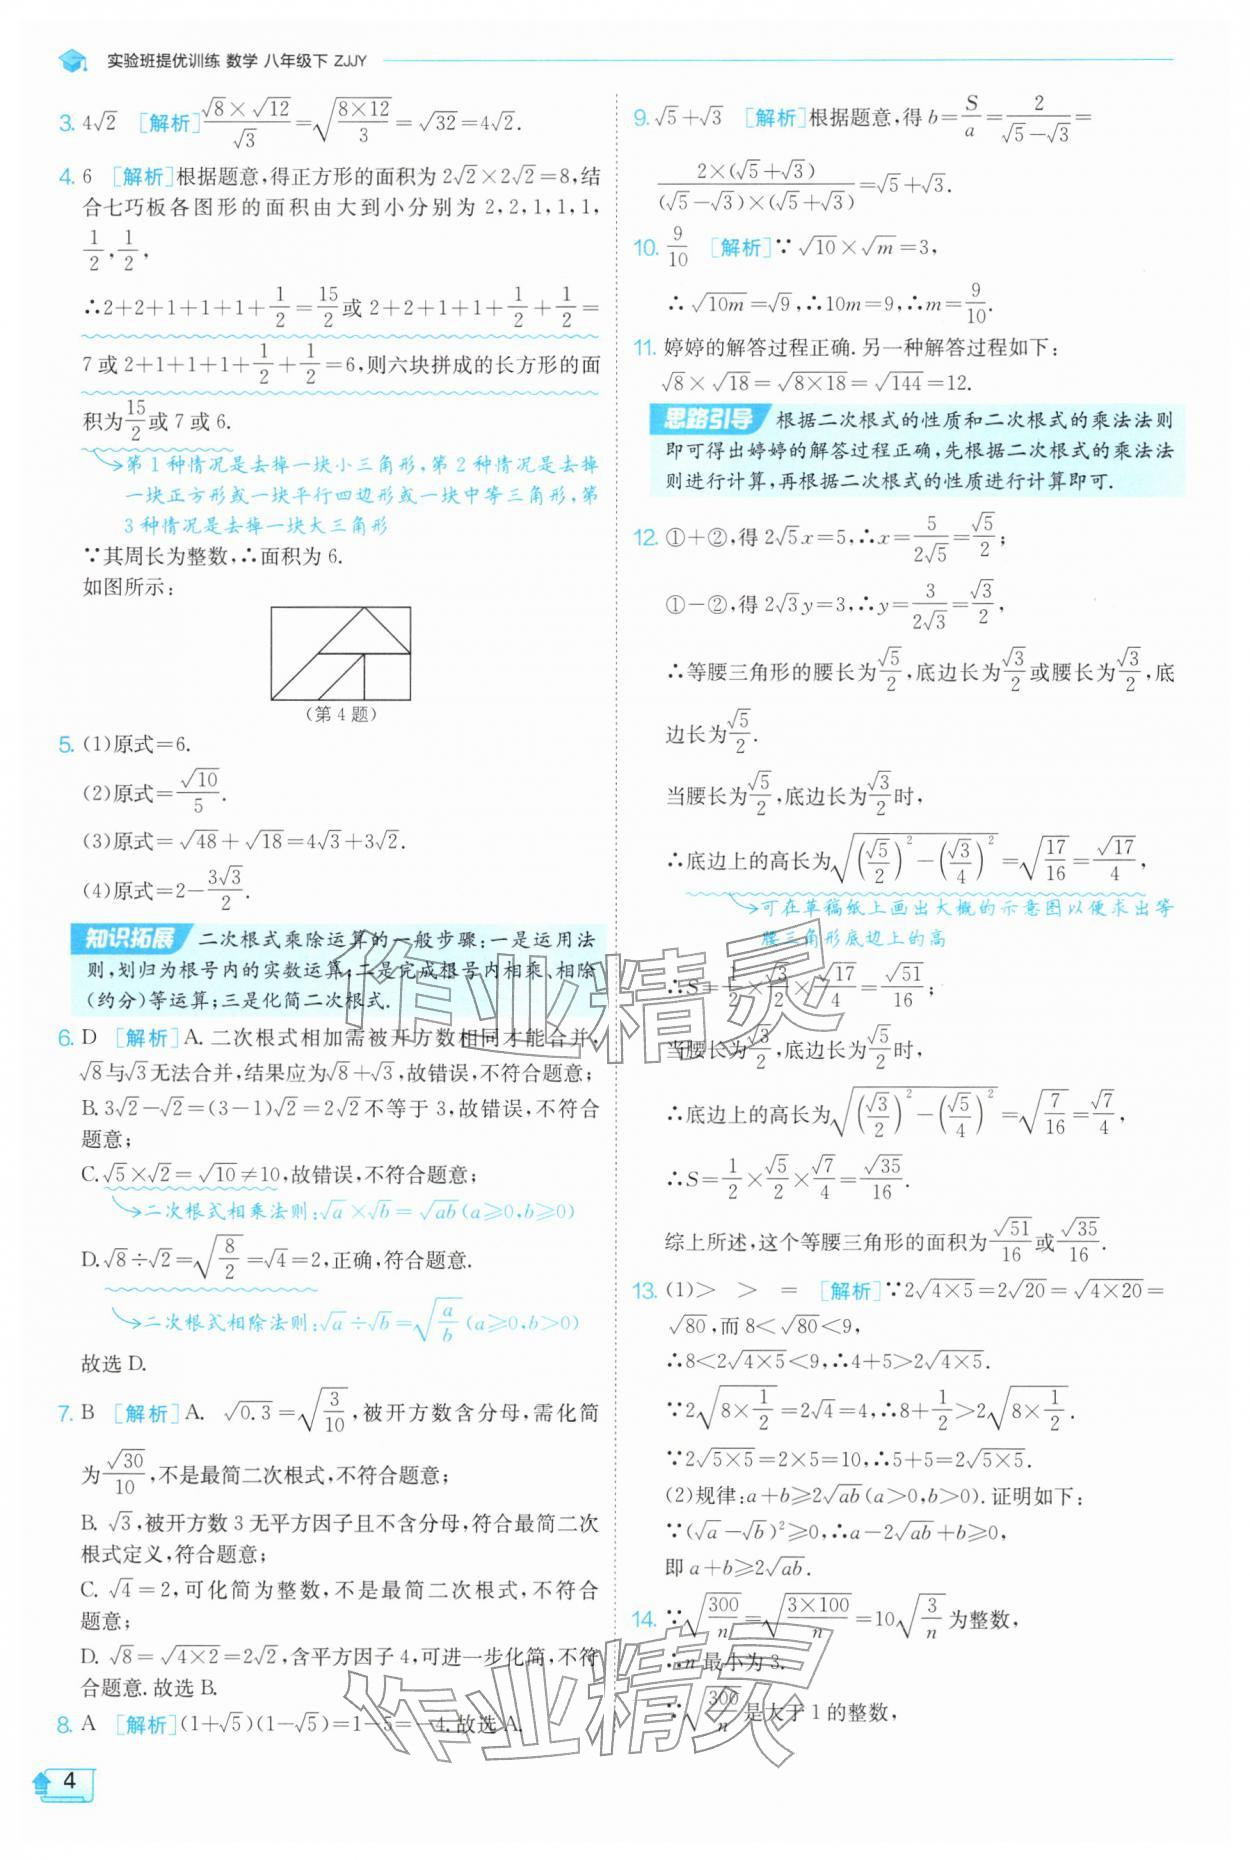 实验班提优训练 数学 八年级下 ZJJY
3. 4√2 [解析] (√8×√12)/√3=√((8×12)/3)=√32=4√2.
4. 6 [解析]根据题意,得正方形的面积为 2√2×2√2=8,结
合七巧板各图形的面积由大到小分别为 2,2,1,1,1,
1/2,1/2,
∴2+2+1+1+1+1/2=15/2或 2+2+1+1+1/2+1/2=
7 或 2+1+1+1+1/2+1/2=6,则六块拼成的长方形的面
积为15/2或 7 或 6.
第 1 种情况是去掉一块小三角形,第 2 种情况是去掉
一块正方形或一块平行四边形或一块中等三角形,第
3 种情况是去掉一块大三角形
∵其周长为整数,∴面积为 6.
如图所示:
(第 4 题)
5. (1)原式=6.
(2)原式=√10/5.
(3)原式=√48+√18=4√3+3√2.
(4)原式=2-3√3/2.
知识拓展 二次根式乘除运算的一般步骤:一是运用法
则,划归为根号内的实数运算;二是完成根号内相乘、相除
(约分)等运算;三是化简二次根式.
6. D [解析]A. 二次根式相加需被开方数相同才能合并,
√8与√3无法合并,结果应为√8+√3,故错误,不符合题意;
B. 3√2-√2=(3-1)√2=2√2不等于 3,故错误,不符合
题意;
C. √5×√2=√10≠10,故错误,不符合题意;
二次根式相乘法则:√a×√b=√ab(a⩾0,b⩾0)
D. √8÷√2=√(8/2)=√4=2,正确,符合题意.
二次根式相除法则:√a÷√b=√(a/b)(a⩾0,b>0)
故选 D.
7. B [解析]A. √0.3=√(3/10),被开方数含分母,需化简
为√30/10,不是最简二次根式,不符合题意;
B. √3,被开方数 3 无平方因子且不含分母,符合最简二次
根式定义,符合题意;
C. √4=2,可化简为整数,不是最简二次根式,不符合
题意;
D. √8=√(4×2)=2√2,含平方因子 4,可进一步化简,不符
合题意.故选 B.
8. A [解析](1+√5)(1-√5)=1-5=-4.故选 A.
4
9. √5+√3 [解析]根据题意,得 b=S/a=2/(√5-√3)=
(2×(√5+√3))/((√5-√3)×(√5+√3))=√5+√3.
10. 9/10 [解析]∵√10×√m=3,
∴√10m=√9,∴10m=9,∴m=9/10.
11. 婷婷的解答过程正确. 另一种解答过程如下:
√8×√18=√(8×18)=√144=12.
思路引导 根据二次根式的性质和二次根式的乘法法则
即可得出婷婷的解答过程正确,先根据二次根式的乘法法
则进行计算,再根据二次根式的性质进行计算即可.
12. ①+②,得 2√5x=5,∴x=5/(2√5)=√5/2;
①-②,得 2√3y=3,∴y=3/(2√3)=√3/2,
∴等腰三角形的腰长为√5/2,底边长为√3/2或腰长为√3/2,底
边长为√5/2.
当腰长为√5/2,底边长为√3/2时,
∴底边上的高长为√((√5/2)²-(√3/4)²)=√(17/16)=√17/4,
可在草稿纸上画出大概的示意图以便求出等
腰三角形底边上的高
∴S=1/2×√3/2×√17/4=√51/16;
当腰长为√3/2,底边长为√5/2时,
∴底边上的高长为√((√3/2)²-(√5/4)²)=√(7/16)=√7/4,
∴S=1/2×√5/2×√7/4=√35/16.
综上所述,这个等腰三角形的面积为√51/16或√35/16.
13. (1)> > = [解析]∵2√(4×5)=2√20=√(4×20)=
√80,而 8<√80<9,
∴8<2√(4×5)<9,∴4+5>2√(4×5).
∵2√(8×1/2)=2√4=4,∴8+1/2>2√(8×1/2).
∵2√(5×5)=2×5=10,∴5+5=2√(5×5).
(2)规律:a+b⩾2√ab(a>0,b>0).证明如下:
∵(√a-√b)²⩾0,∴a-2√ab+b⩾0,
即 a+b⩾2√ab.
14. ∵√(300/n)=√((3×100)/n)=10√(3/n) 为整数,
∴n 最小为 3.
∵√(300/n)是大于 1 的整数,
作业精灵
作业精灵